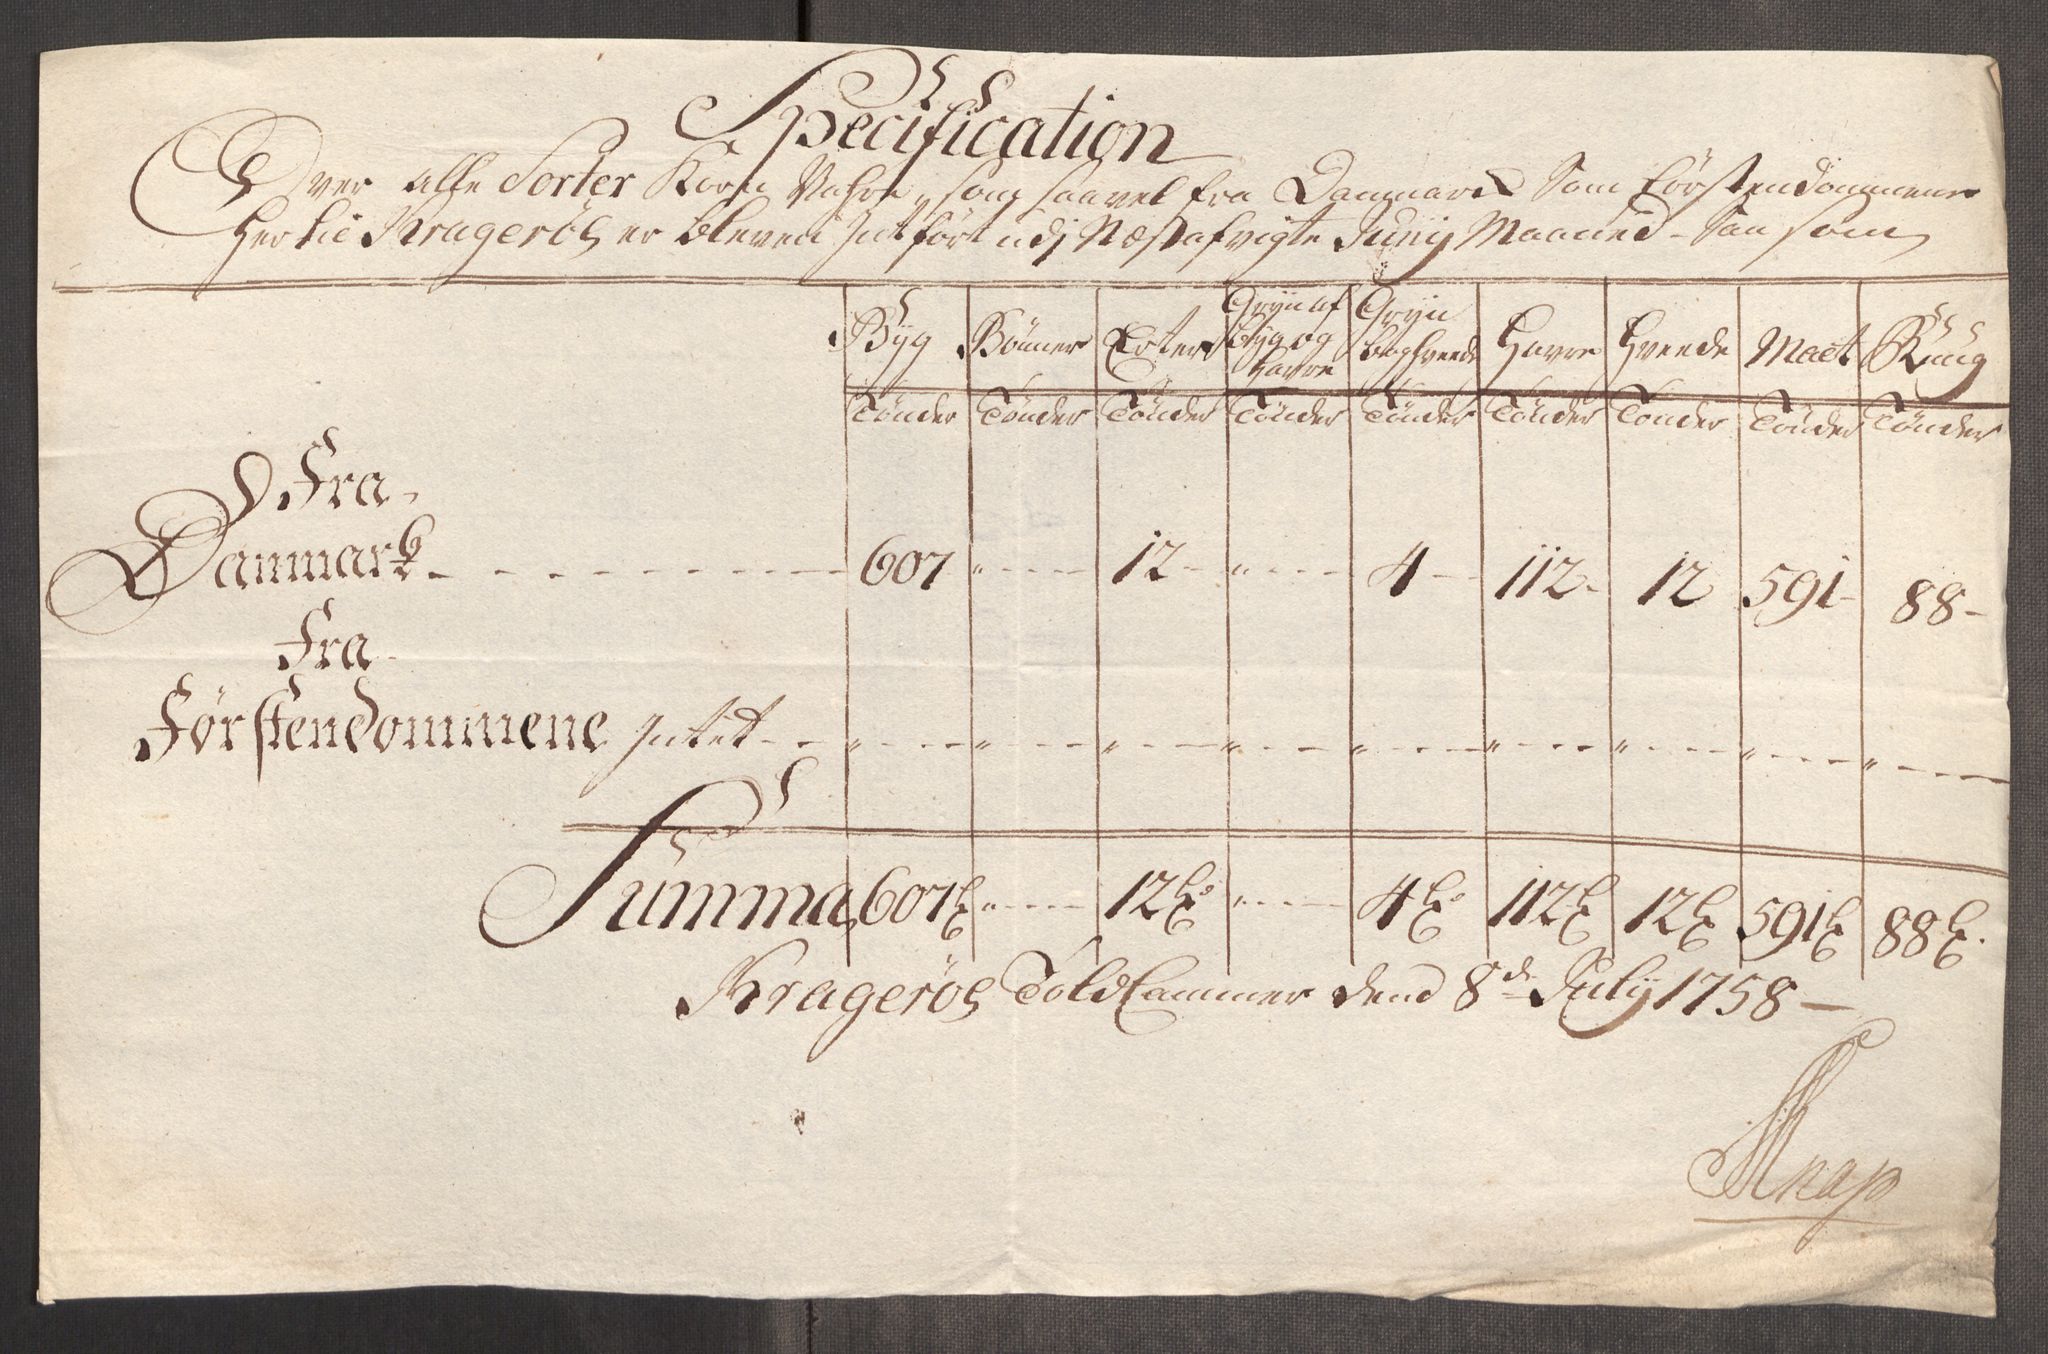 Specification
Over alle Sorter Korn Vahre, som saavel fra Danmarck Som Förstendommene
Her til Krageröe er bleven Indfört udj Næstafvigte Junij Maaned - Saa som
Byg Bönner Erter Gryn af Byg og Havre Gryn boghvede Havre Hvede Malt Rüug
Tönder Tönder Tönder Tönder Tönder Tönder Tönder Tönder Tönder
Fra
Danmark 607 12 4 112 12 591 88
Fra
Førstendommene Intet
Summa 607 12 4 112 12 591 88
Krageröe Told Cammer dend 8de July 1758
Knap